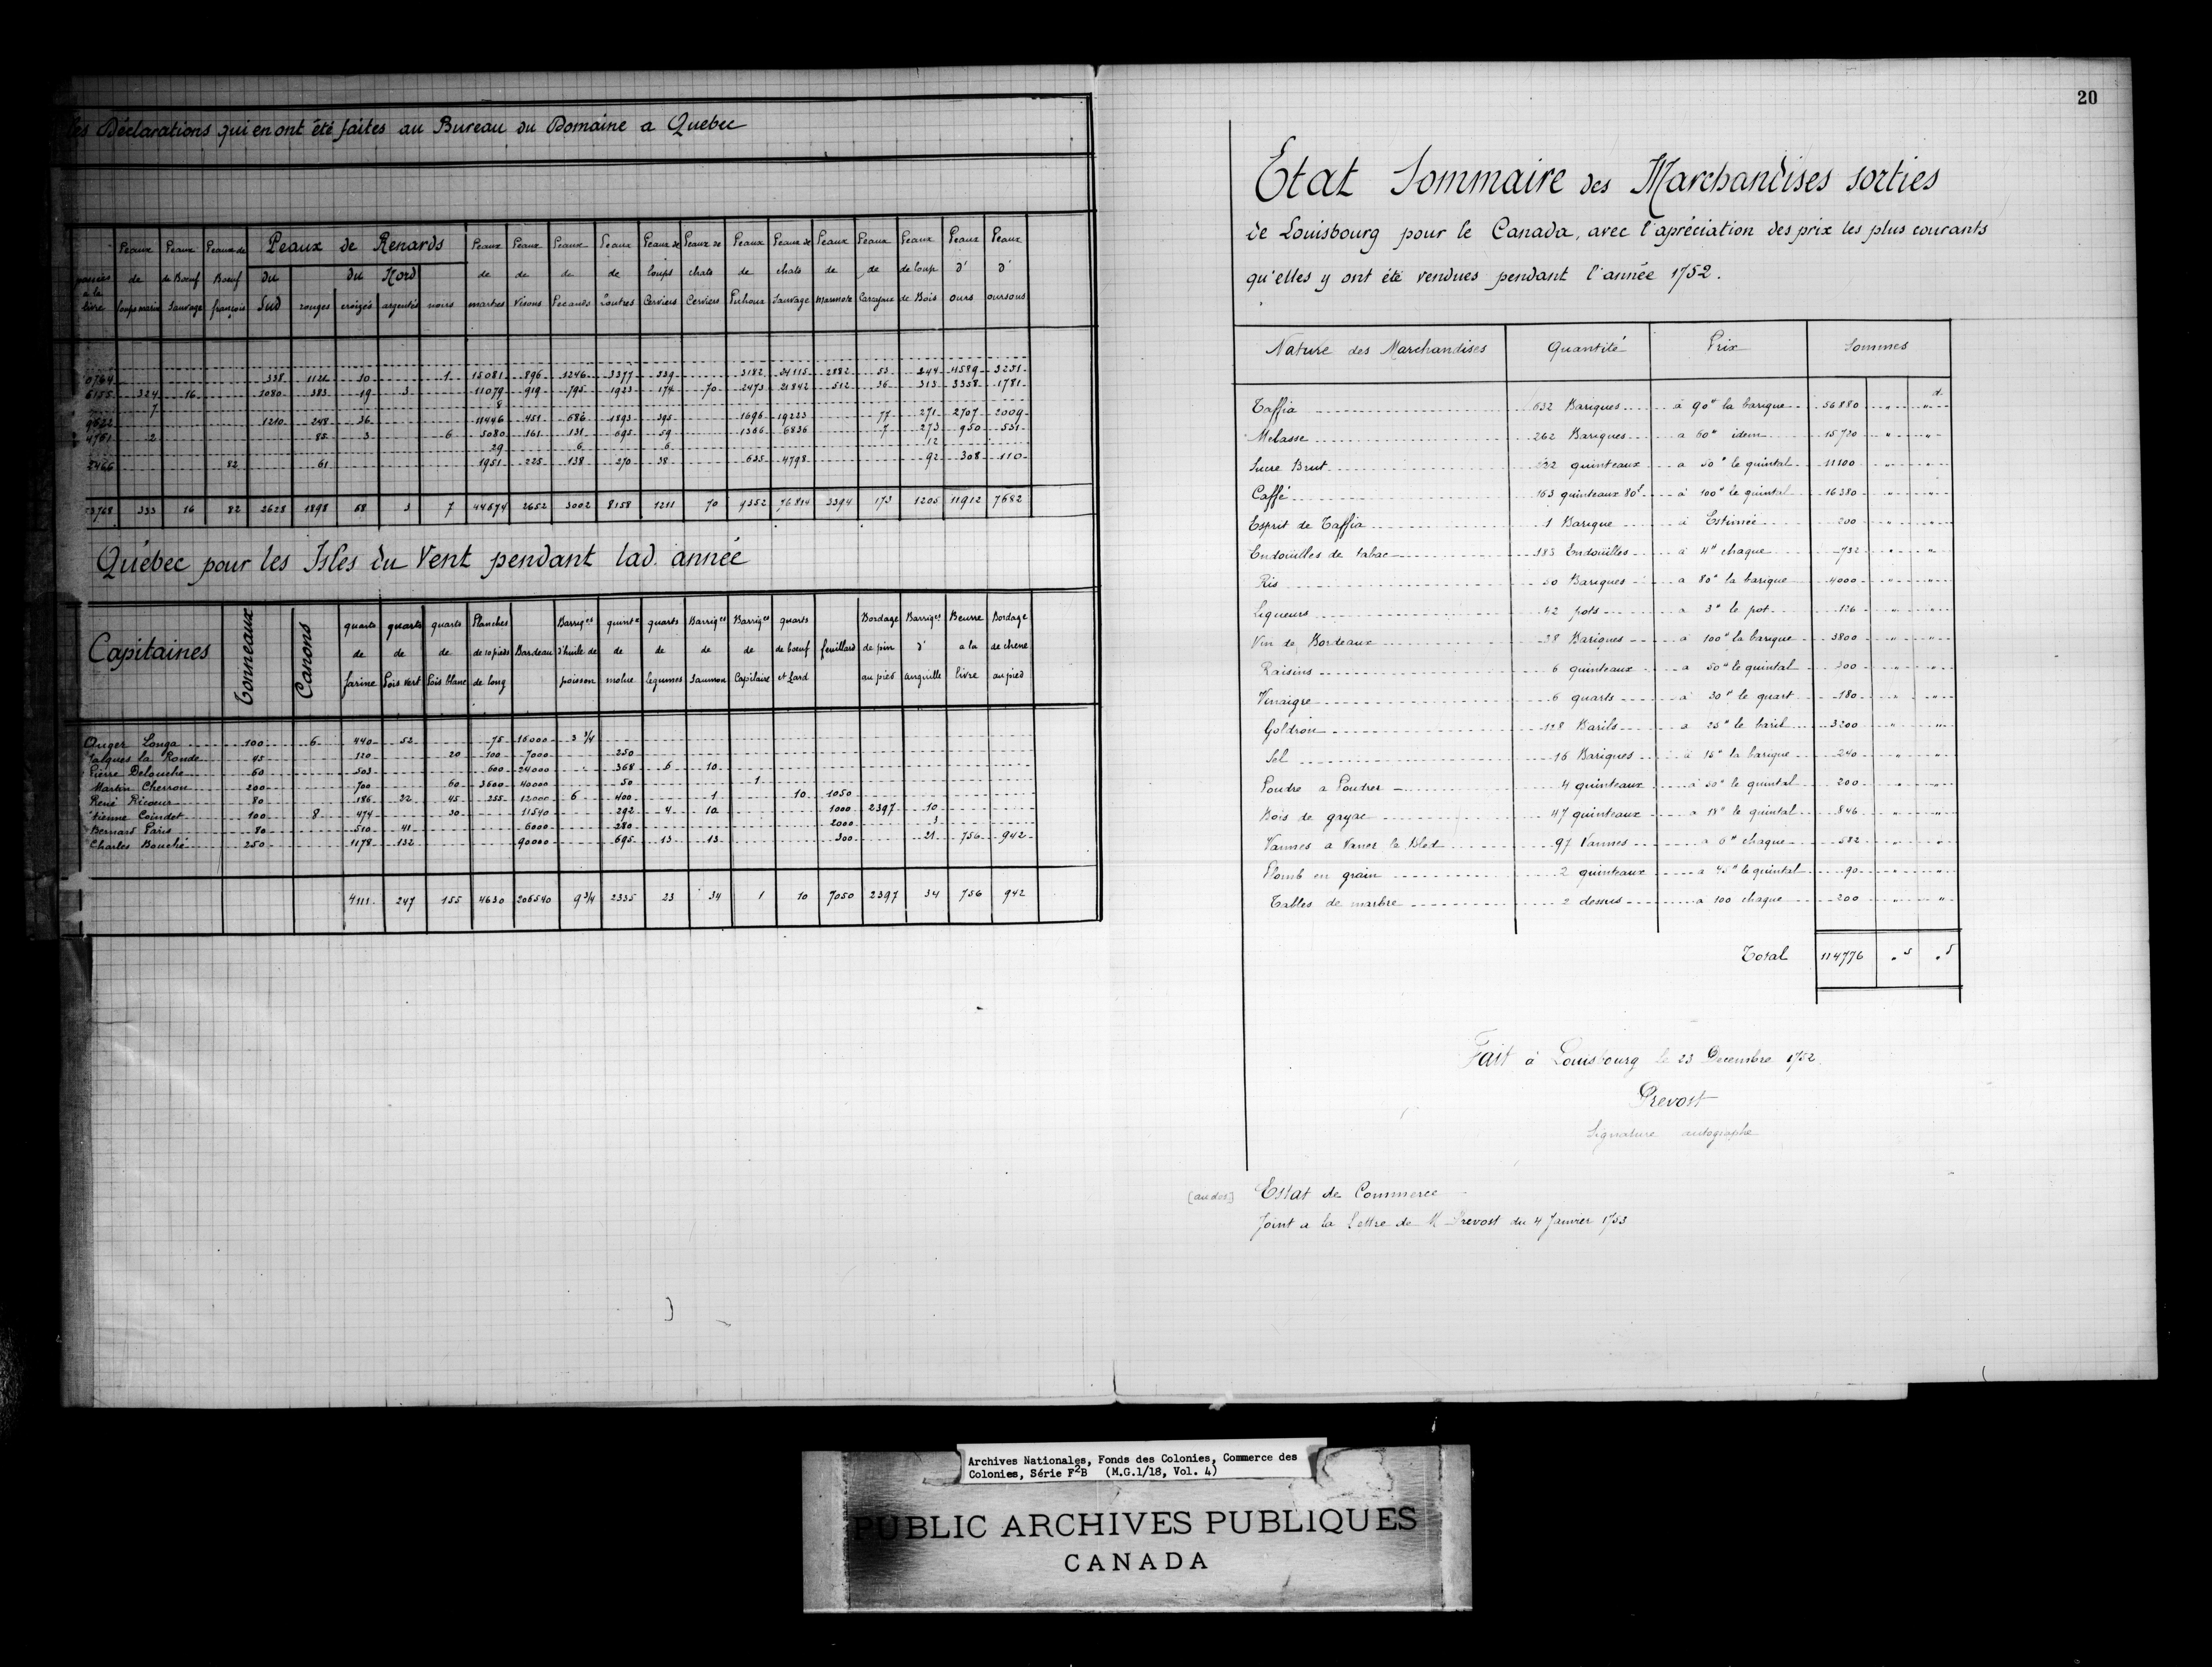 Déclarations qui en ont été faites au Bureau du Domaine a Quebec
Peaux de loups marin | Peaux de Bœuf Sauvage | Peaux de Bœuf françois | Peaux de Renards du Sud | du Nord rouges | croizés | argentés | noirs | Peaux de martres | Peaux de Visons | Peaux de Pecands | Peaux de Loutres | Peaux de loups Cerviers | Peaux de chats Cerviers | Peaux de Pichoux | Peaux de chats Sauvage | Peaux de Marmote | Peaux de Carcajoux | Peaux de loup de Bois | Peaux d' ours | Peaux d' oursons
338 1121 10 1 15081 896 1246 3377 539 3182 24115 2882 53 244 4589 3231
6155 324 16 1080 383 19 3 11079 919 795 1923 174 70 2473 21842 512 36 313 3358 1781
7 8
1210 248 36 11446 451 686 1893 395 1696 19223 77 271 2707 2009
4761 2 85 3 6 5080 161 131 695 59 1366 6836 7 273 950 531
29 6 6 12
2466 82 61 1951 225 138 270 38 635 4798 92 308 110
333 16 82 2628 1898 68 3 7 44674 2652 3002 8158 1211 70 9352 76814 3394 173 1205 11912 7682
Québec pour les Isles du Vent pendant lad. année
Capitaines | Tonneaux | Canons | quarts de farine | quarts de Pois Vert | quarts de Pois blanc | Planches de 10 pieds de long | Bardeau | Barriqes d'huile de poisson | quintx de molue | quarts de legumes | Barriqes de Saumon | Barriqes de Capilaire | quarts de boeuf et Lard | feuillard | Bordage de pin au pied | Barriqes d' anguille | Beurre a la livre | Bordage de chene au pied
Ouger Longa 100 6 440 52 75 16000 3 3/4
Jalques la Ronde 45 120 20 100 7000 250
Pierre Delouche 60 503 600 24000 368 6 10
Martin Cherron 200 700 60 3600 40000 50 1
René Ricoeur 80 186 22 45 255 12000 6 400 1 10 1050
Etienne Coindet 100 8 474 30 11540 292 4 10 1000 2397 10
Bernard Paris 80 510 41 6000 280 2000 3
Charles Bouché 250 1178 132 90000 695 13 13 300 21 756 942
4111 247 155 4630 206540 9 3/4 2335 23 34 1 10 7050 2397 34 756 942
20
Etat Sommaire des Marchandises sorties
de Louisbourg pour le Canada, avec l'apréciation des prix les plus courants
qu'elles y ont été vendues pendant l'année 1752.
Nature des Marchandises | Quantité | Prix | Sommes
d.
Taffia 632 Bariques à 90" la barique 56880 " "
Melasse 262 Bariques a 60" idem 15720 " "
Sucre Brut 222 quinteaux a 50" le quintal 11100 " "
Caffé 163 quinteaux 80l à 100" le quintal 16380 " "
Esprit de Taffia 1 Barique à Estimée 200 " "
Endouilles de tabac 183 Endouilles à 4" chaque 732 " "
Ris 50 Bariques a 80" la barique 4000 " "
Liqueurs 42 pots a 3" le pot 126 " "
Vin de Bordeaux 38 Bariques à 100" la barique 3800 " "
Raisins 6 quinteaux a 50" le quintal 300 " "
Vinaigre 6 quarts à 30" le quart 180 " "
Goldron 128 Barils a 25" le baril 3200 " "
Sel 16 Bariques à 15" la barique 240 " "
Poudre a Poudrer 4 quinteaux à 50" le quintal 200 " "
Bois de gayac 47 quinteaux a 18" le quintal 846 " "
Vannes a Vaner le Bled 97 Vannes a 6" chaque 582 " "
Plomb en grain 2 quinteaux a 45" le quintal 90 " "
Tables de marbre 2 dessus a 100 chaque 200 " "
Total 114776 " s " s
Fait à Louisbourg le 23 Decembre 1752
Prevost
Signature autographe
[au dos] Estat de Commerce
Joint a la Lettre de M Prevost du 4 Janvier 1753
Archives Nationales, Fonds des Colonies, Commerce des
Colonies, Série F2B (M.G.1/18, Vol. 4)
PUBLIC ARCHIVES PUBLIQUES
CANADA